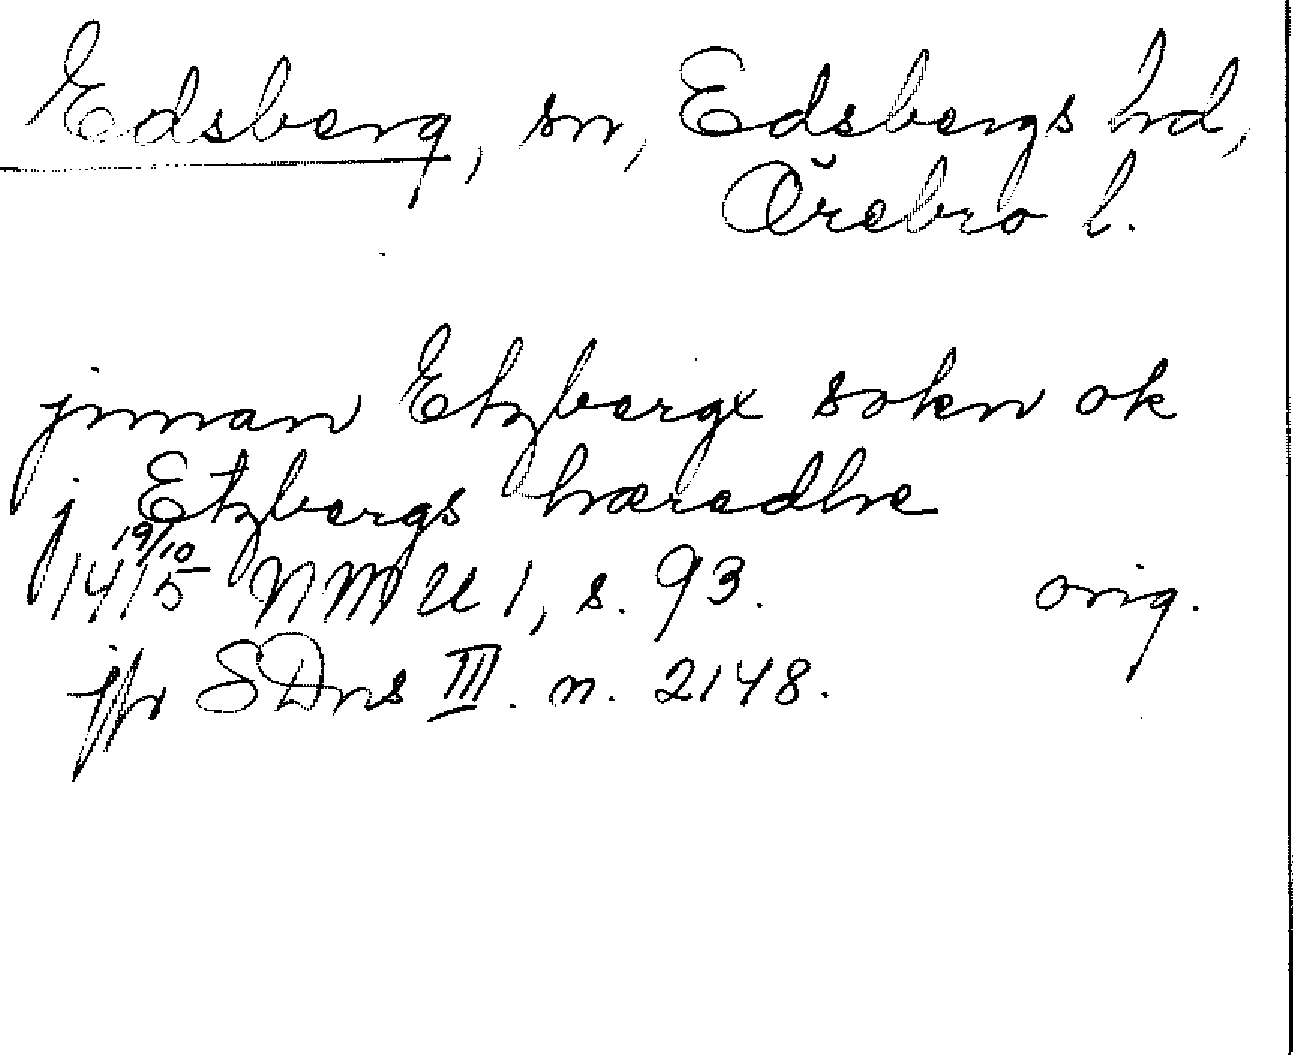 Edsberg, sn, Edsbergs hd,
Örebro l.
jnnan Etzbergx sokn ok
j Etzbergs hæradhe
19/10
1415 NMU 1, s. 93. orig.
jfr SDns III. n. 2148.